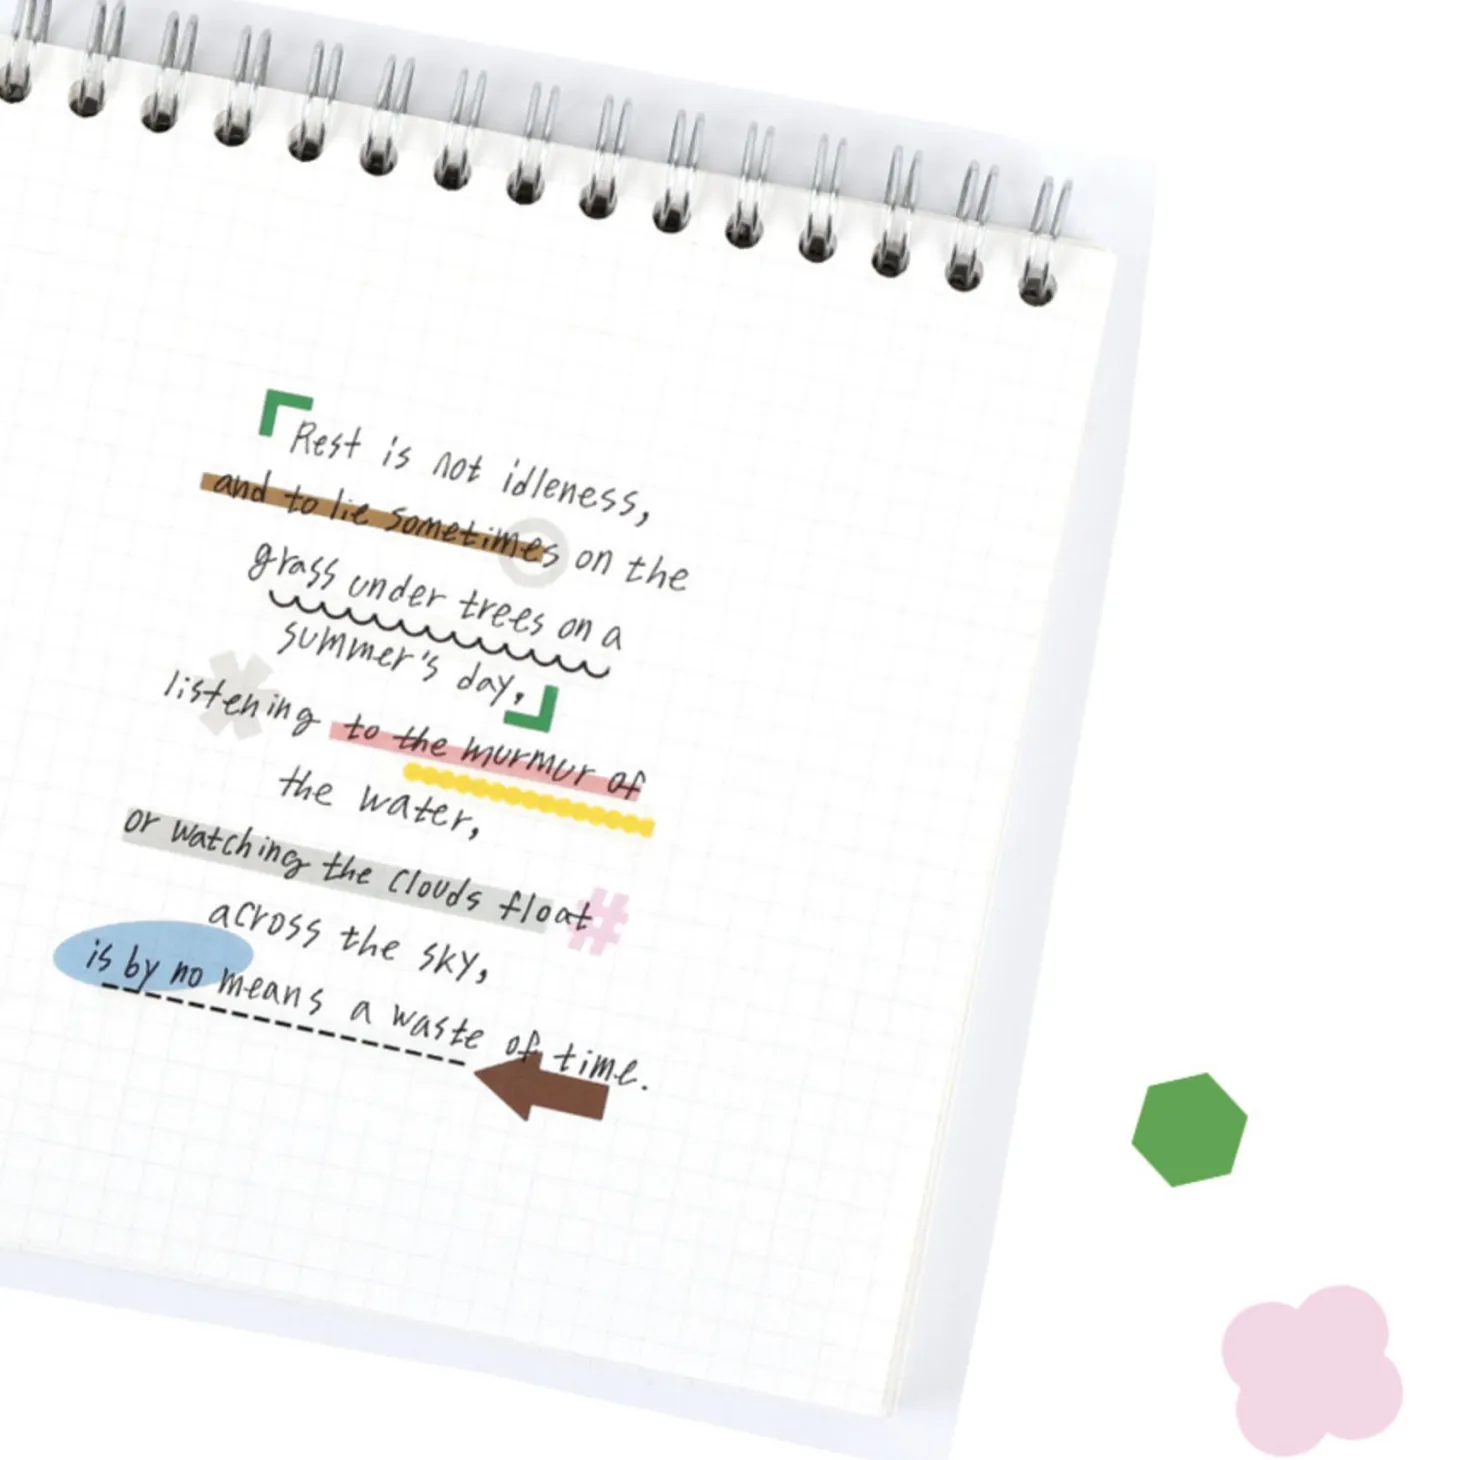 Rest is not idleness,
and to lie sometimes on the
grass under trees on a
summer's day,
listening to the murmur of
the water,
or watching the clouds float
across the sky,
is by no means a waste of time.